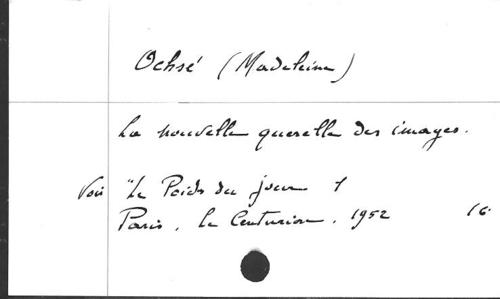 Ochsé (Madeleine)
La nouvelle querelle des images.
Voir "Le Poids du jour"
Paris, le Centurion, 1952 16